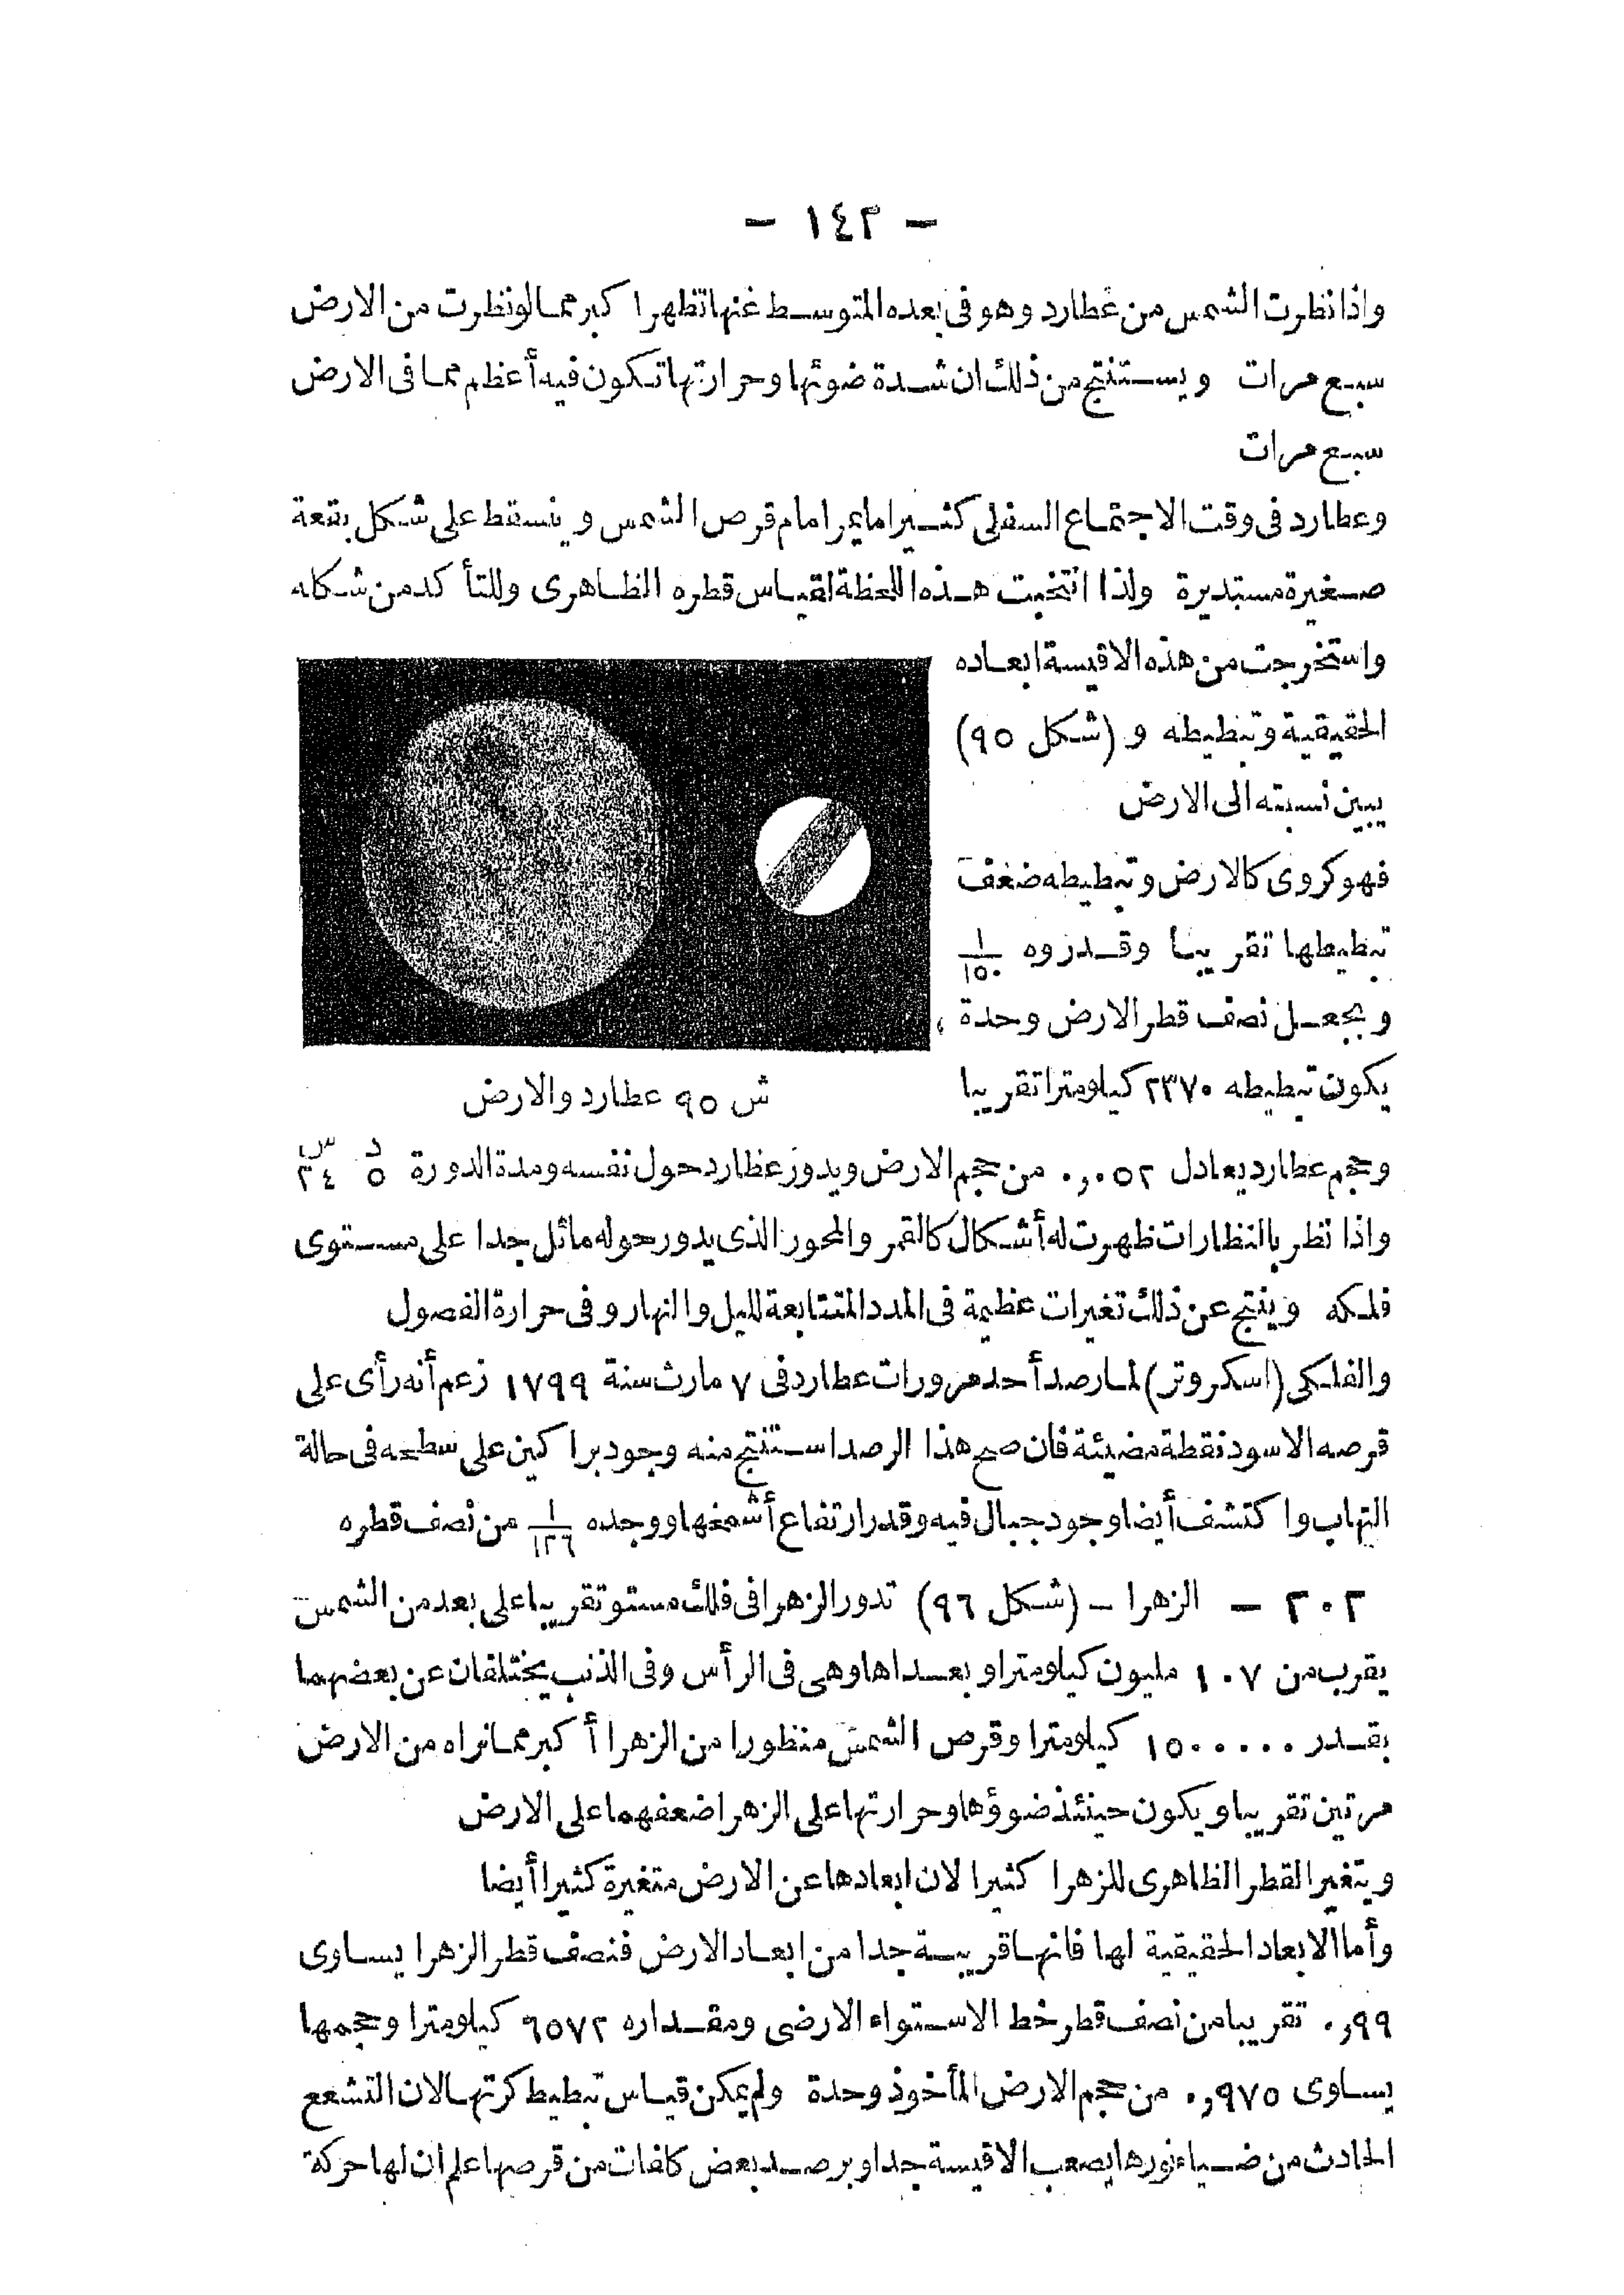 - ١٤٢ -
واذا نظرت الشمس من عطارد وهو فى بعده المتوسط عنها تظهر اكبر مما لو نظرت من الارض
سبع مرات ويستنتج من ذلك ان شدة ضوئها وحرارتها تكون فيه أعظم مما فى الارض
سبع مرات
وعطارد فى وقت الاجتماع السفلى كثيرا ما يمر امام قرص الشمس ويسقط على شكل بقعة
صغيرة مستديرة ولذا انتخبت هذه اللحظة لقياس قطره الظاهرى وللتأكد من شكله
واستخرجت من هذه الاقيسة ابعاده
الحقيقية وتبطيطه و (شكل ٩٥)
يبين نسبته الى الارض
فهو كروى كالارض وتبطيطه ضعف
تبطيطها تقريبا وقدروه ١/١٥٠
وبجعل نصف قطر الارض وحدة
يكون تبطيطه ٢٣٧٠ كيلومترا تقريبا
ش ٩٥ عطارد والارض
وحجم عطارد يعادل ٠,٠٥٢ من حجم الارض ويدور عطارد حول نفسه ومدة الدورة ٥ د ٢٤ س
واذا نظر بالنظارات ظهرت له أشكال كالقمر والمحور الذى يدور حوله مائل جدا على مستوى
فلكه وينتج عن ذلك تغيرات عظيمة فى المدد المتتابعة لليل والنهار وفى حرارة الفصول
والفلكى (اسكروتر) لما رصد أحد مرورات عطارد فى ٧ مارث سنة ١٧٩٩ زعم أنه رأى على
قرصه الاسود نقطة مضيئة فان صح هذا الرصد استنتج منه وجود براكين على سطحه فى حالة
التهاب واكتشف أيضا وجود جبال فيه وقدر ارتفاع أشمخها ووجده ١/١٢٦ من نصف قطره
٢٠٢ - الزهرا - (شكل ٩٦) تدور الزهرا فى فلك مستو تقريبا على بعد من الشمس
يقرب من ١٠٧ مليون كيلومترا وبعداها وهى فى الرأس وفى الذنب يختلفان عن بعضهما
بقدر ١٥٠٠٠٠٠ كيلومترا وقرص الشمس منظورا من الزهرا أكبر مما نراه من الارض
مرتين تقريبا ويكون حينئذ ضوؤها وحرارتها على الزهرا ضعفهما على الارض
ويتغير القطر الظاهرى للزهرا كثيرا لان ابعادها عن الارض متغيرة كثيرا أيضا
وأما الابعاد الحقيقية لها فانها قريبة جدا من ابعاد الارض فنصف قطر الزهرا يساوى
٠,٩٩ تقريبا من نصف قطر خط الاستواء الارضى ومقداره ٦٥٧٢ كيلومترا وحجمها
يساوى ٠,٩٧٥ من حجم الارض المأخوذ وحدة ولم يمكن قياس تبطيط كرتها لان التشعع
الحادث من ضياء نورها يصعب الاقيسة جدا وبرصد بعض كلفات من قرصها علم ان لها حركة